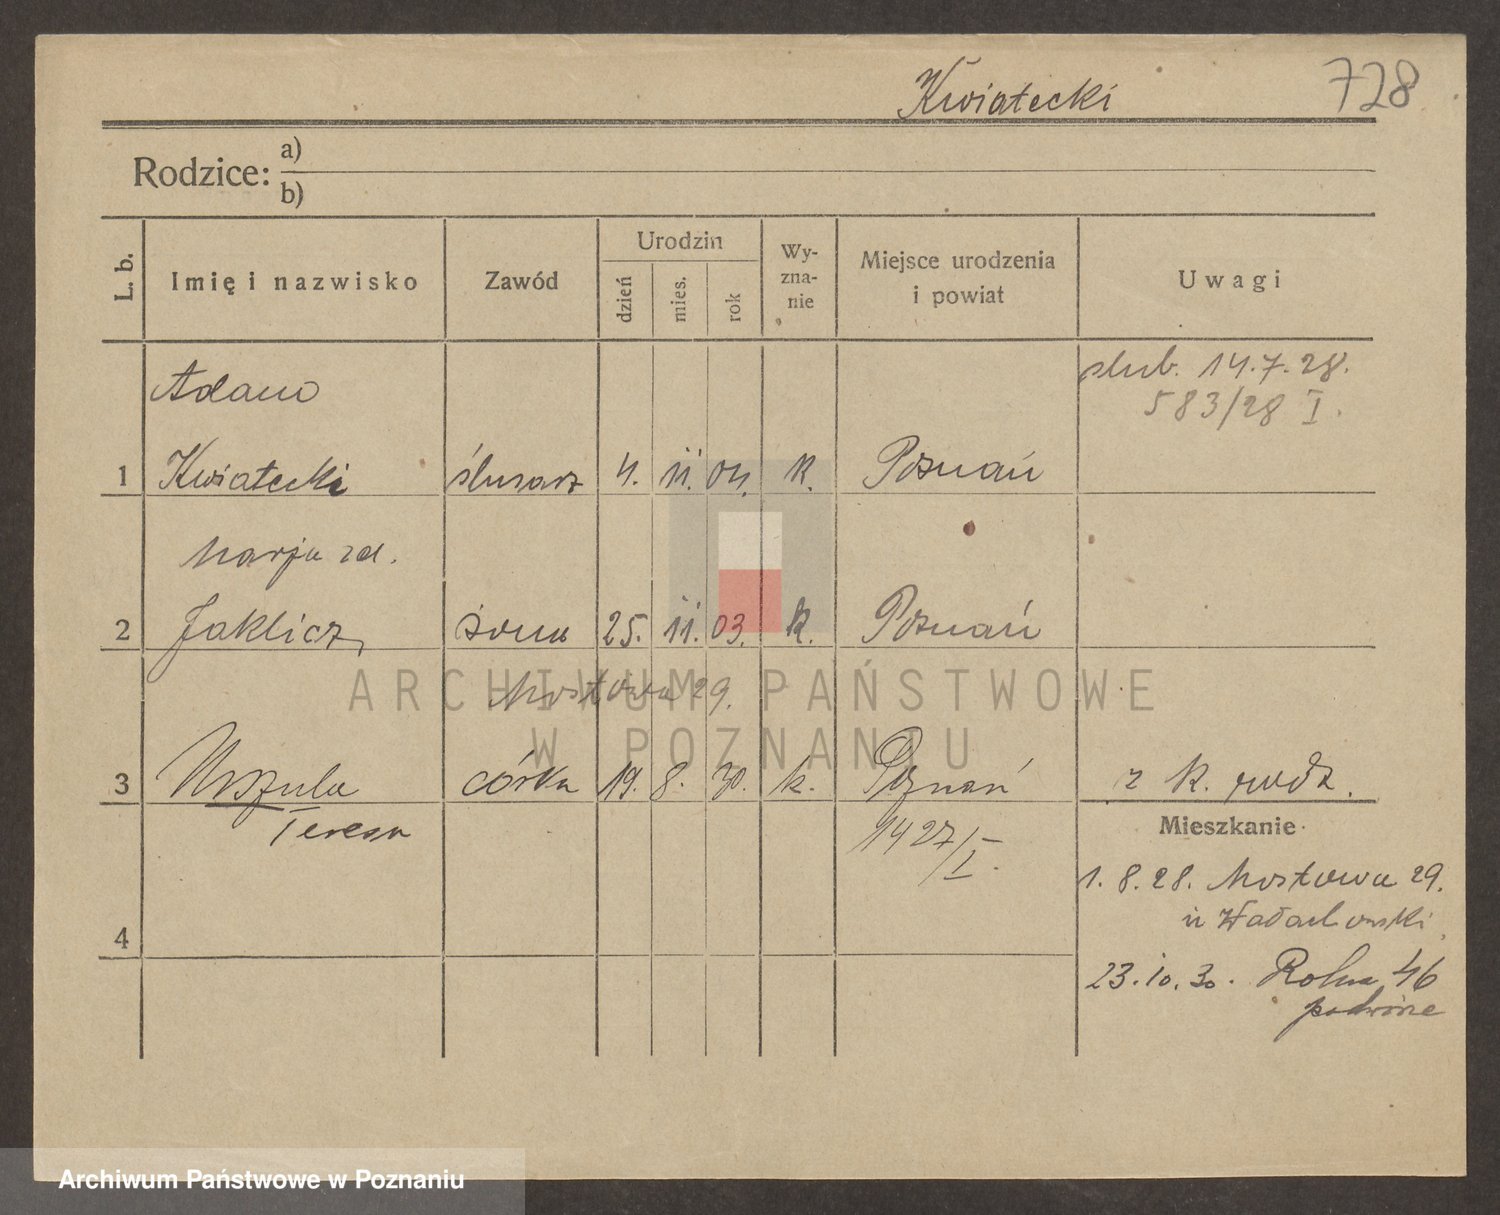 Kwiatecki 728
Rodzice: a)
b)
L. b. Imię i nazwisko Zawód Urodzin dzień mies. rok Wy-zna-nie Miejsce urodzenia i powiat Uwagi
Adam
ślub. 14.7.28.
583/28 I.
1 Kwiatecki ślusarz 4. 11. 04. k. Poznań
Marja zd.
2 Jaklicz, żona 25. 11. 03. k. Poznań
Mostowa 29.
ARCHIWUM PAŃSTWOWE
W POZNANIU
3 Urszula córka 19. 8. 30. k. Poznań z k. rodz.
Teresa 1427/I.
Mieszkanie
1. 8. 28. Mostowa 29.
u
4
23. 10. 30. Rolna 46
podwórze
Archiwum Państwowe w Poznaniu